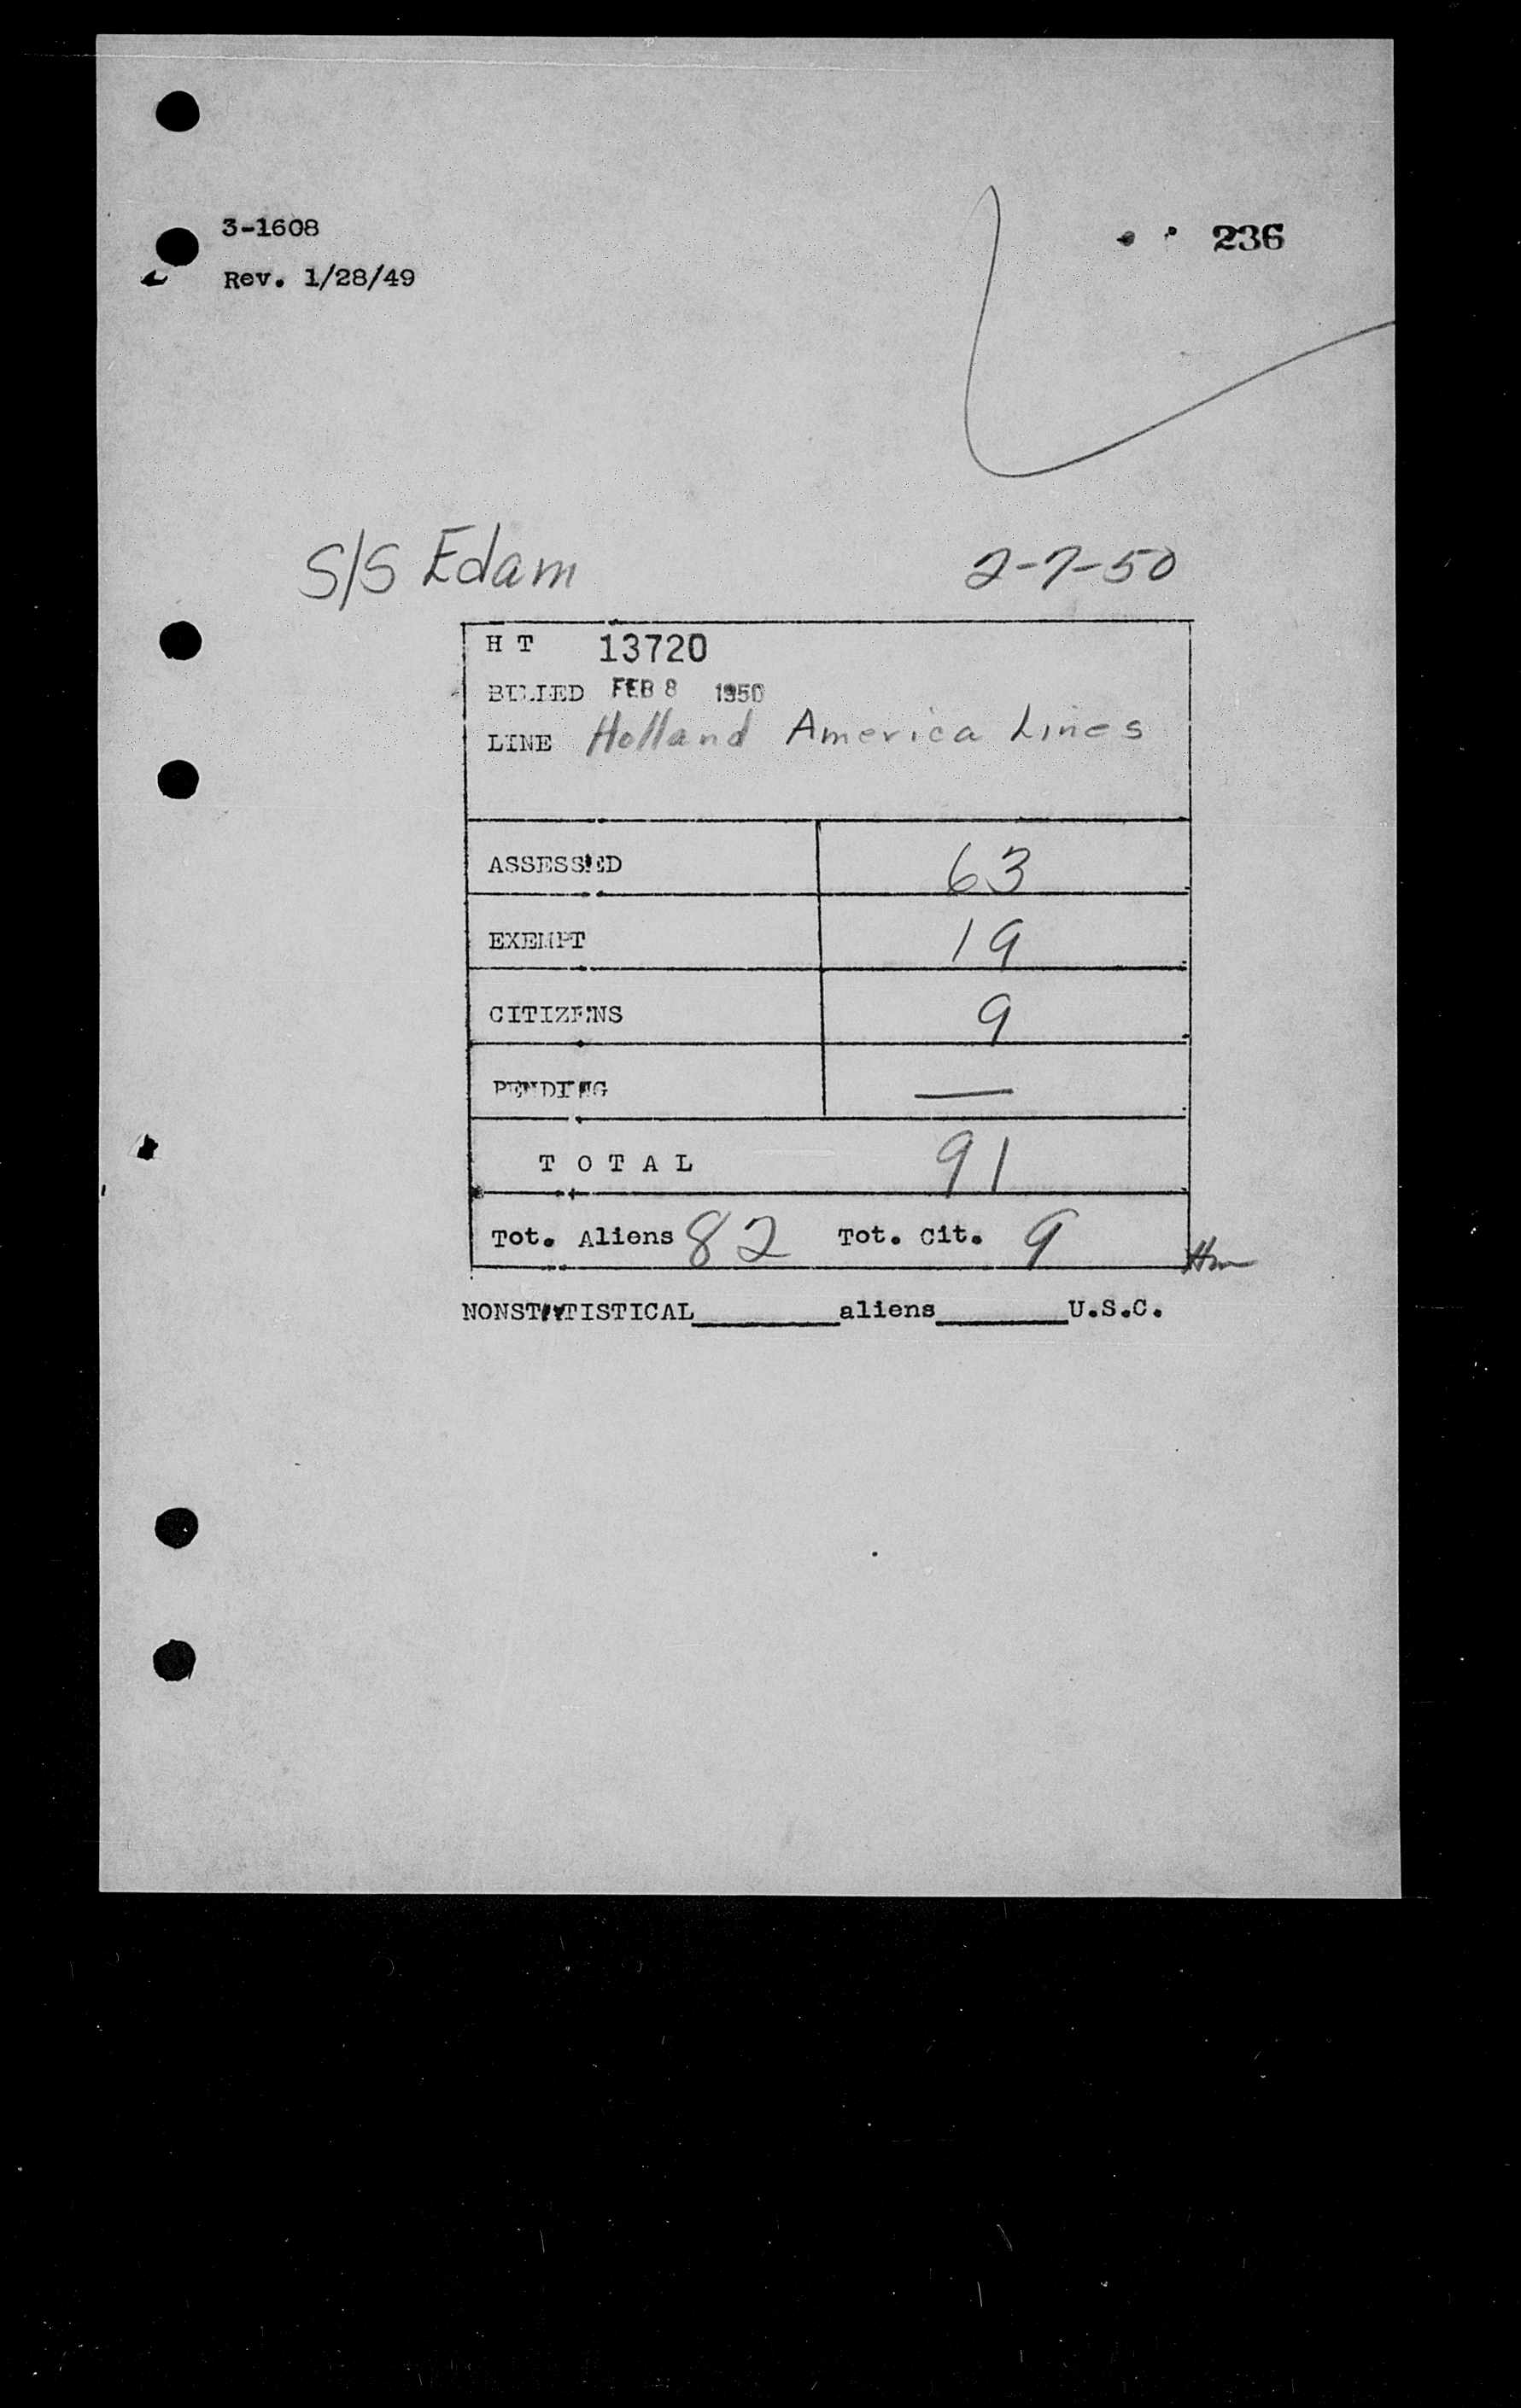 3-1608
236
Rev. 1/28/49
S/S Edam 2-7-50
H T 13720
BILLED FEB 8 1950
LINE Holland America Lines
ASSESSED 63
EXEMPT 19
CITIZENS 9
PENDING —
T O T A L 91
Tot. Aliens 82 Tot. Cit. 9
NONSTATISTICAL________aliens_______U.S.C.